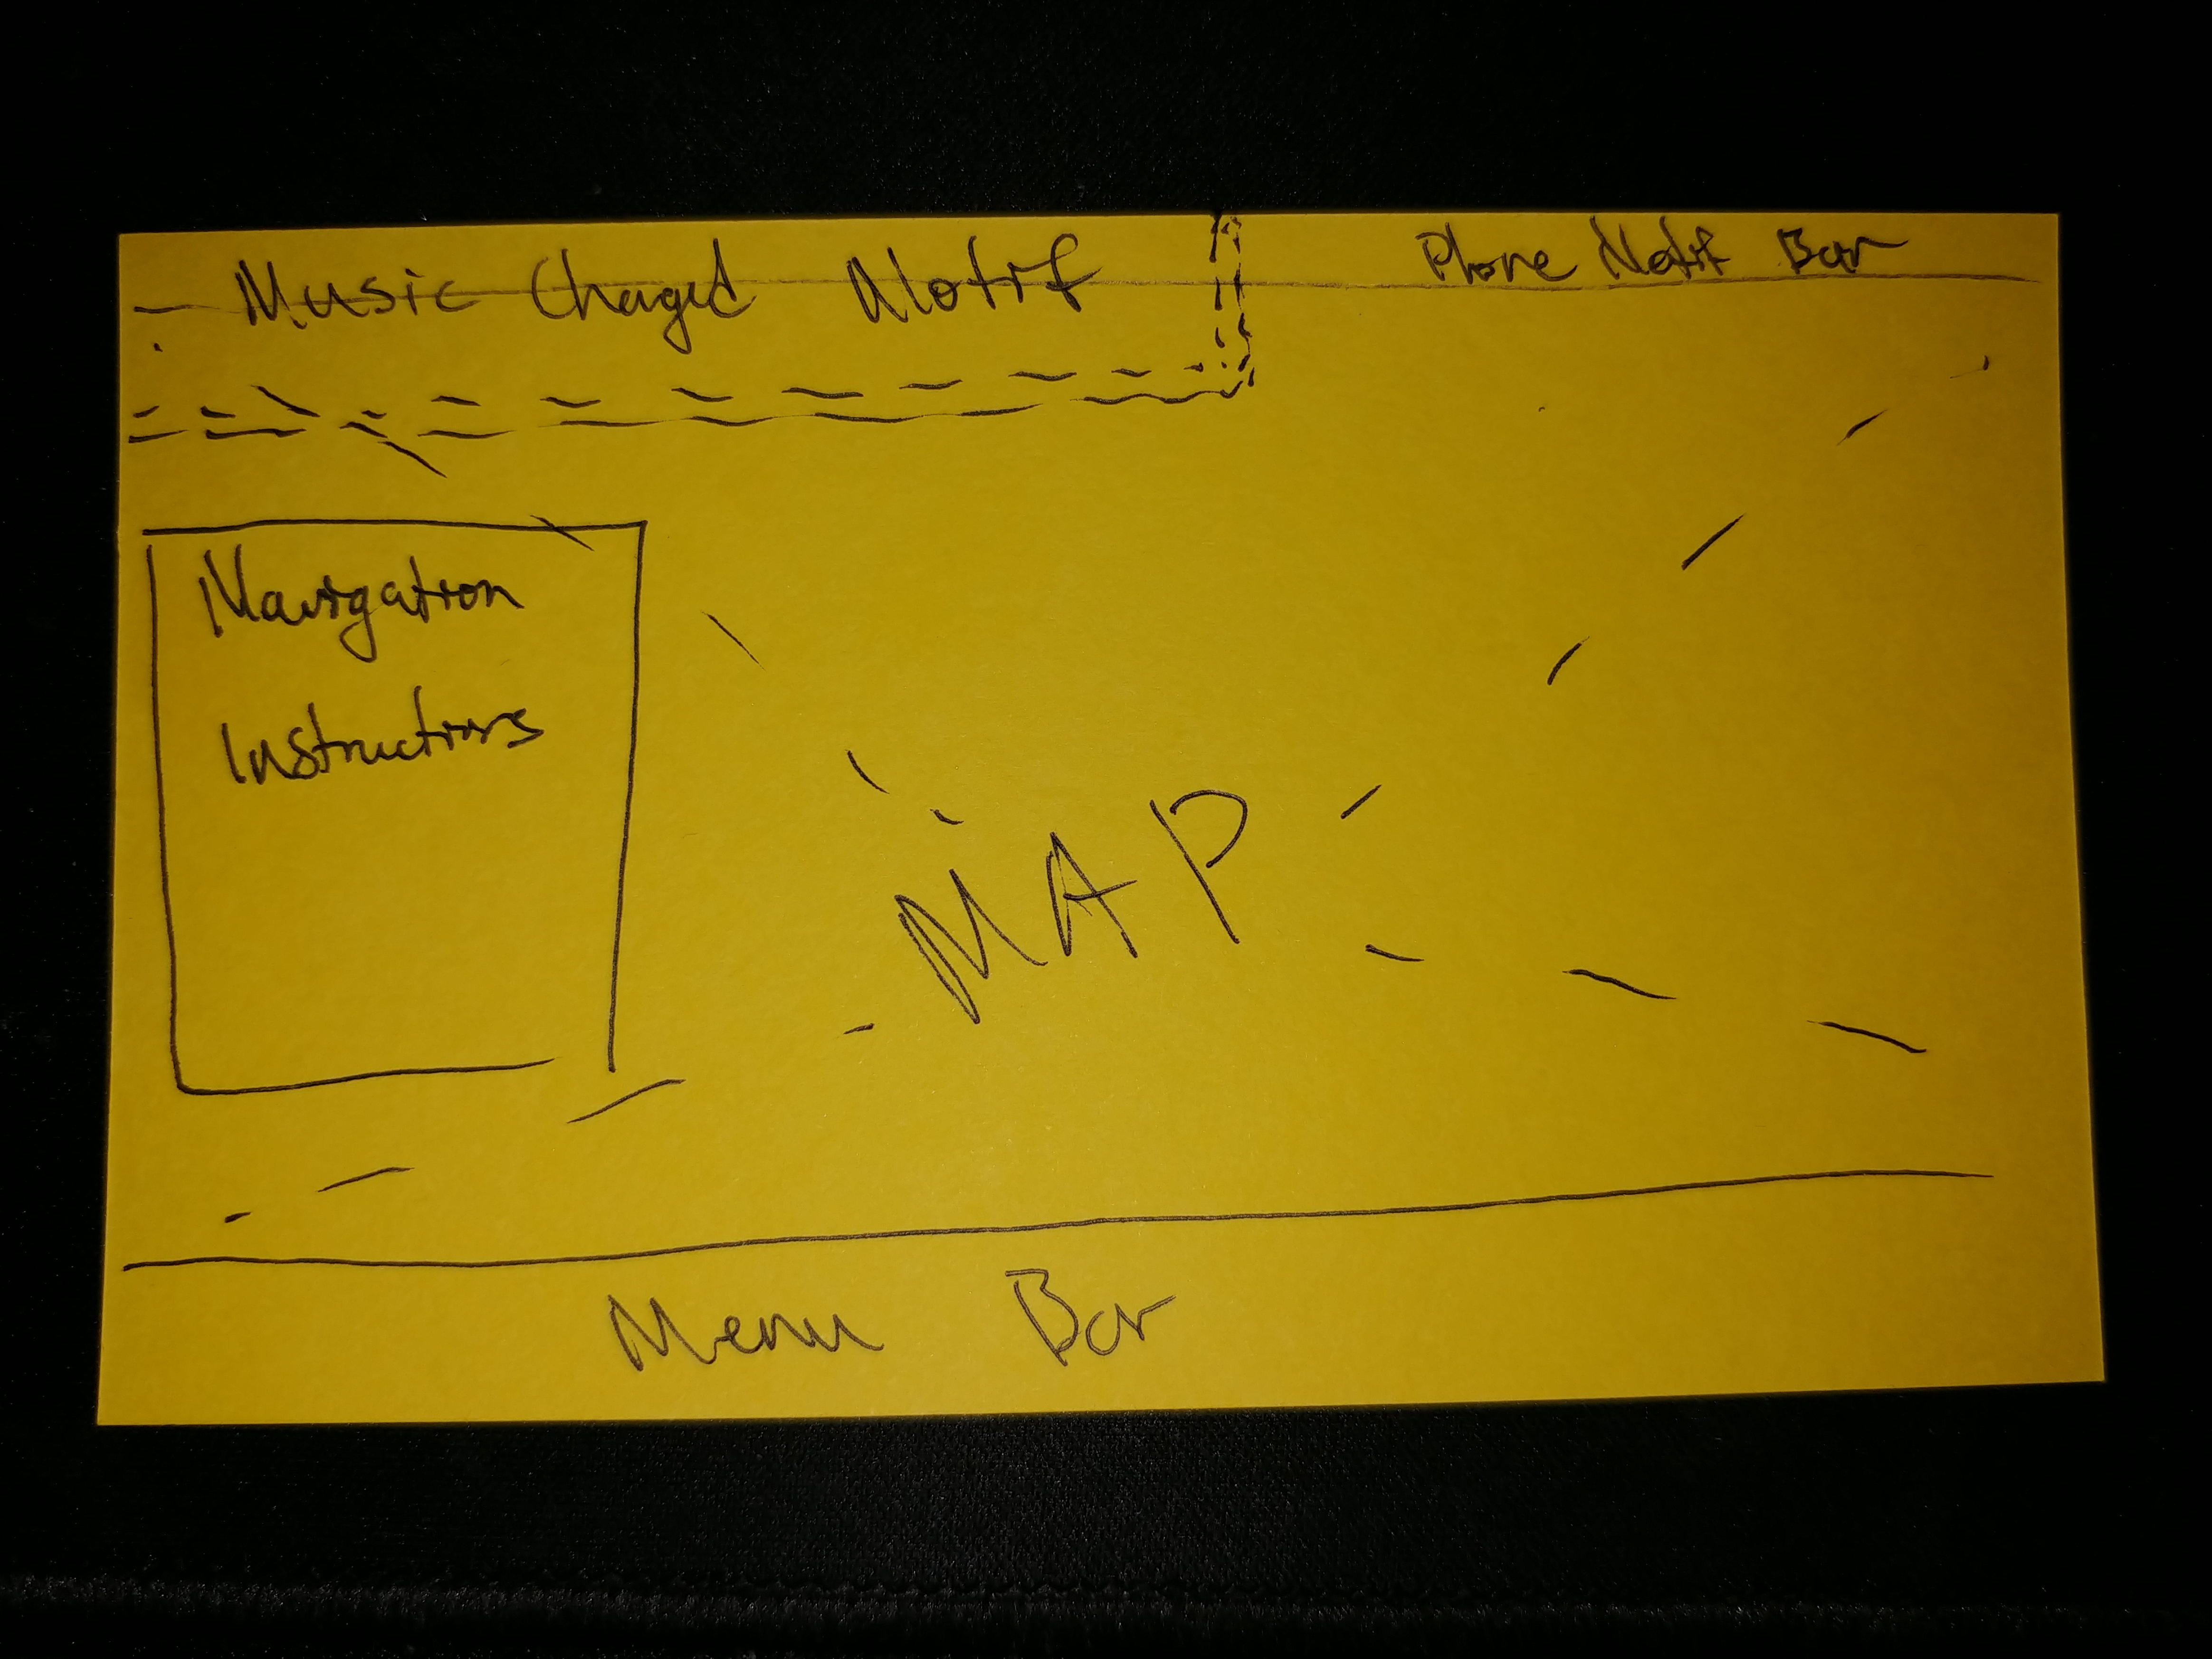 Music Changed Notif
Phone Notif Bar
Navigation
Instructions
MAP
Menu Bar